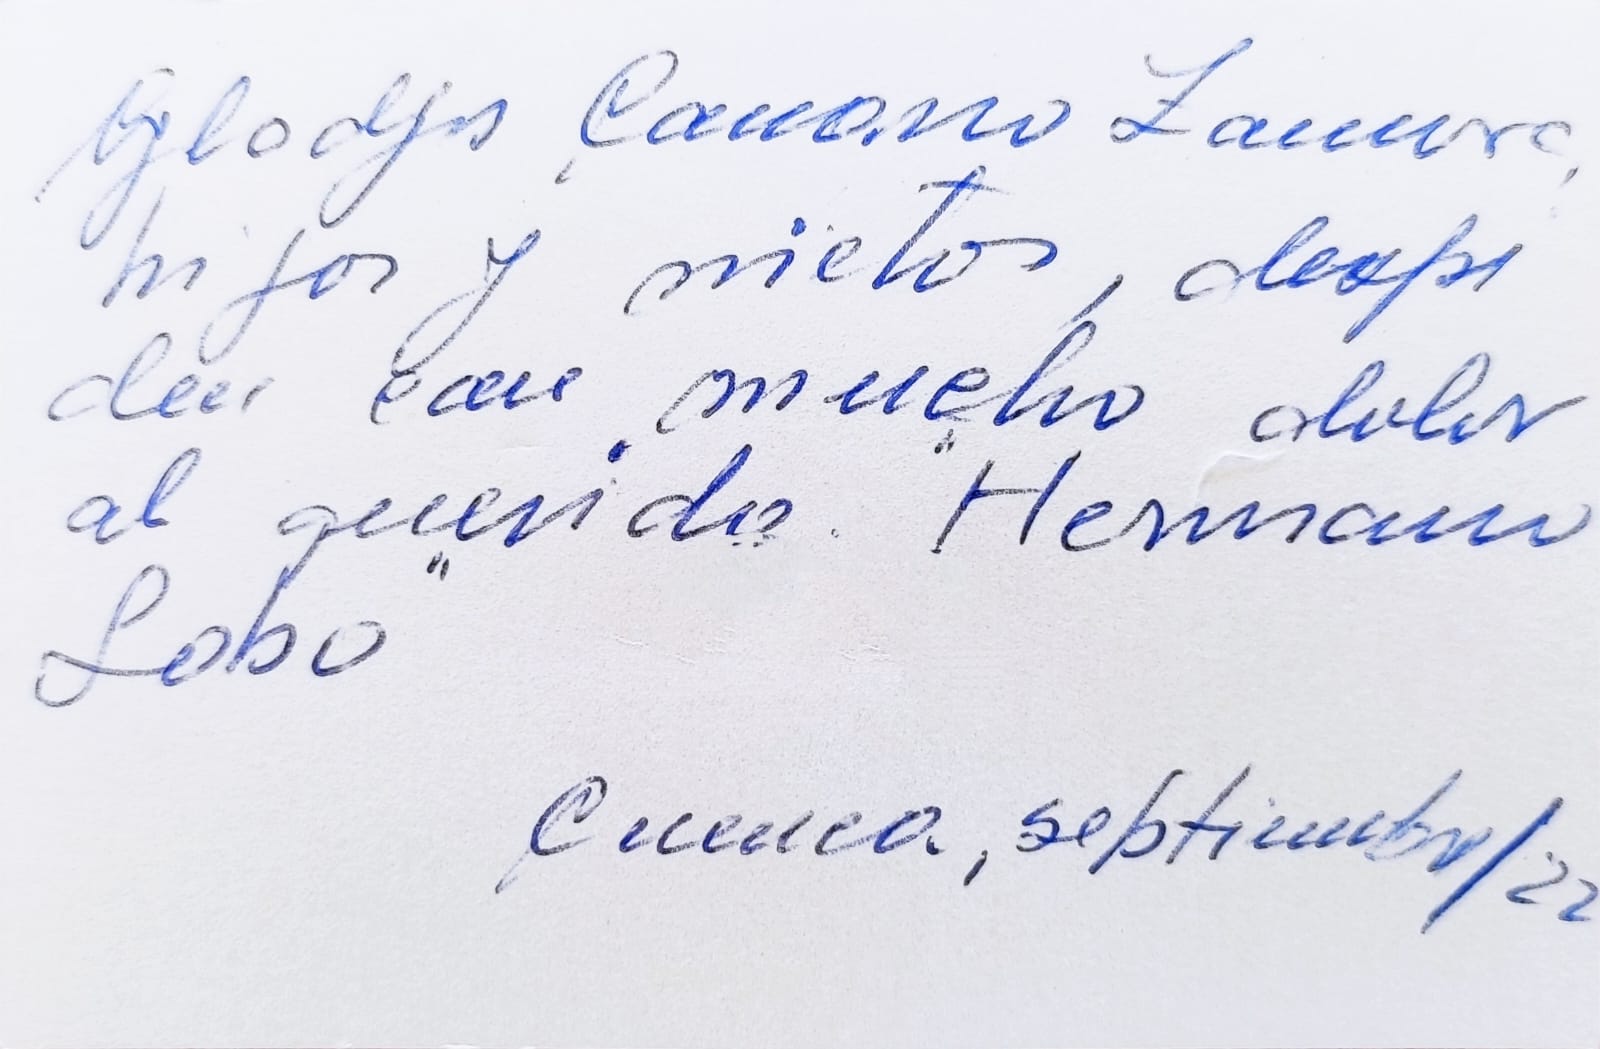 Gladys Camano Zamora,
hijos y nietos, despi
den con mucho dolor
al querido. "Hermano
Lobo"
Cuenca, septiembre/22